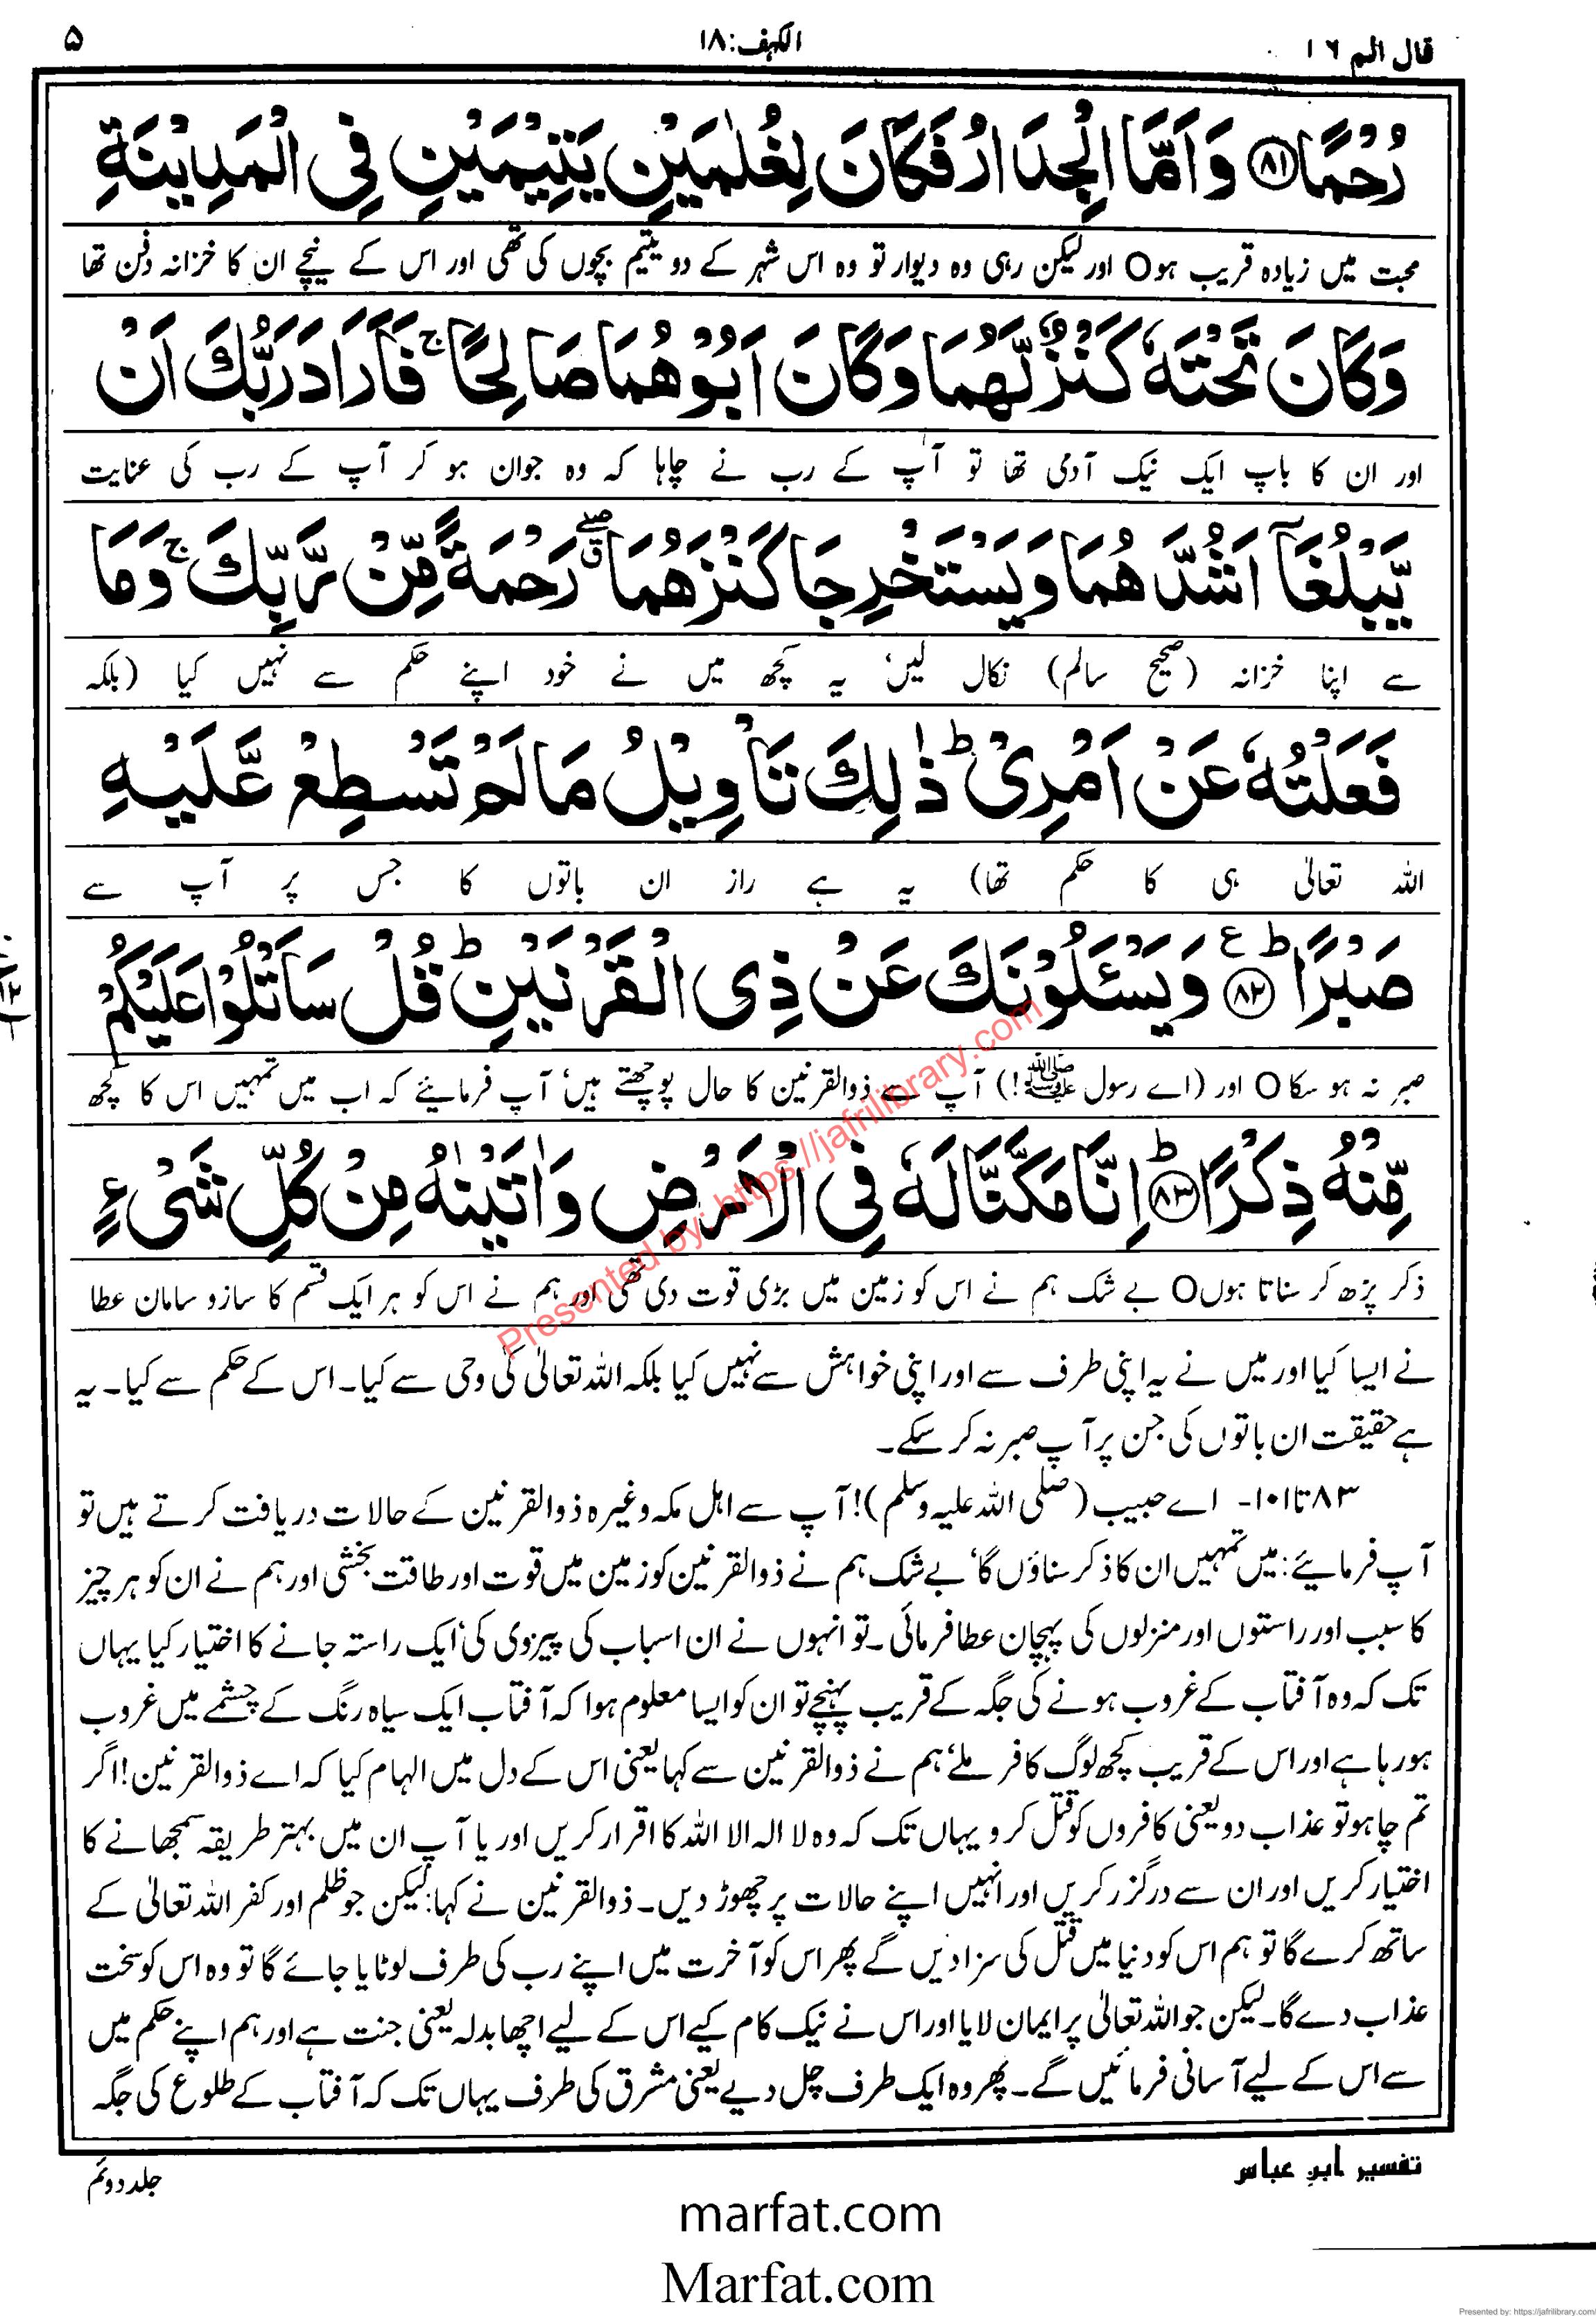 قال الم ١٦
الکہف: ١٨
۵
رُحْمًا ﴿٨١﴾ وَاَمَّا الْجِدَارُ فَكَانَ لِغُلٰمَيْنِ يَتِيْمَيْنِ فِى الْمَدِيْنَةِ
محبت میں زیادہ قریب ہوO اور لیکن رہی وہ دیوار تو وہ اس شہر کے دو یتیم بچوں کی تھی اور اس کے نیچے ان کا خزانہ دفن تھا
وَكَانَ تَحْتَهٗ كَنْزٌ لَّهُمَا وَكَانَ اَبُوْهُمَا صَالِحًا ۚ فَاَرَادَ رَبُّكَ اَنْ
اور ان کا باپ ایک نیک آدمی تھا تو آپ کے رب نے چاہا کہ وہ جوان ہو کر آپ کے رب کی عنایت
يَّبْلُغَآ اَشُدَّهُمَا وَيَسْتَخْرِجَا كَنْزَهُمَا ۖق رَحْمَةً مِّنْ رَّبِّكَ ۚ وَمَا
سے اپنا خزانہ (صحیح سالم) نکال لیں، یہ کچھ میں نے خود اپنے حکم سے نہیں کیا (بلکہ
فَعَلْتُهٗ عَنْ اَمْرِىْ ؕ ذٰلِكَ تَاْوِيْلُ مَا لَمْ تَسْطِعْ عَّلَيْهِ
اللہ تعالیٰ ہی کا حکم تھا) یہ ہے راز ان باتوں کا جس پر آپ سے
صَبْرًا ؕ ﴿٨٢﴾ ع وَيَسْئَلُوْنَكَ عَنْ ذِى الْقَرْنَيْنِ ؕ قُلْ سَاَتْلُوْا عَلَيْكُمْ
صبر نہ ہو سکاO اور (اے رسول ﷺ!) آپ سے ذوالقرنین کا حال پوچھتے ہیں، آپ فرمائیے کہ اب میں تمہیں اس کا کچھ
مِّنْهُ ذِكْرًا ؕ ﴿٨٣﴾ اِنَّا مَكَّنَّا لَهٗ فِى الْاَرْضِ وَاٰتَيْنٰهُ مِنْ كُلِّ شَىْءٍ
ذکر پڑھ کر سناتا ہوںO بے شک ہم نے اس کو زمین میں بڑی قوت دی تھی اور ہم نے اس کو ہر ایک قسم کا سازو سامان عطا
نے ایسا کیا اور میں نے یہ اپنی طرف سے اور اپنی خواہش سے نہیں کیا بلکہ اللہ تعالیٰ کی وحی سے کیا۔ اس کے حکم سے کیا۔ یہ
ہے حقیقت ان باتوں کی جن پر آپ صبر نہ کر سکے۔
٨٣ تا ١٠١۔ اے حبیب (صلی اللہ علیہ وسلم)! آپ سے اہل مکہ وغیرہ ذوالقرنین کے حالات دریافت کرتے ہیں تو
آپ فرمائیے: میں تمہیں ان کا ذکر سناؤں گا، بے شک ہم نے ذوالقرنین کو زمین میں قوت اور طاقت بخشی اور ہم نے ان کو ہر چیز
کا سبب اور راستوں اور منزلوں کی پہچان عطا فرمائی۔ تو انہوں نے ان اسباب کی پیروی کی، ایک راستہ جانے کا اختیار کیا یہاں
تک کہ وہ آفتاب کے غروب ہونے کی جگہ کے قریب پہنچے تو ان کو ایسا معلوم ہوا کہ آفتاب ایک سیاہ رنگ کے چشمے میں غروب
ہو رہا ہے اور اس کے قریب کچھ لوگ کافر ملے، ہم نے ذوالقرنین سے کہا یعنی اس کے دل میں الہام کیا کہ اے ذوالقرنین! اگر
تم چاہو تو عذاب دو یعنی کافروں کو قتل کرو یہاں تک کہ وہ لا الہ الا اللہ کا اقرار کریں اور یا آپ ان میں بہتر طریقہ سمجھانے کا
اختیار کریں اور ان سے درگزر کریں اور انہیں اپنے حالات پر چھوڑ دیں۔ ذوالقرنین نے کہا: لیکن جو ظلم اور کفر اللہ تعالیٰ کے
ساتھ کرے گا تو ہم اس کو دنیا میں قتل کی سزا دیں گے پھر اس کو آخرت میں اپنے رب کی طرف لوٹایا جائے گا تو وہ اس کو سخت
عذاب دے گا۔ لیکن جو اللہ تعالیٰ پر ایمان لایا اور اس نے نیک کام کیے اس کے لیے اچھا بدلہ یعنی جنت ہے اور ہم اپنے حکم میں
سے اس کے لیے آسانی فرمائیں گے۔ پھر وہ ایک طرف چل دیے یعنی مشرق کی طرف یہاں تک کہ آفتاب کے طلوع کی جگہ
تفسیر ابن عباس
جلد دوئم
marfat.com
Marfat.com
Presented by: https://jafrilibrary.com
Presented by: https://jafrilibrary.com/